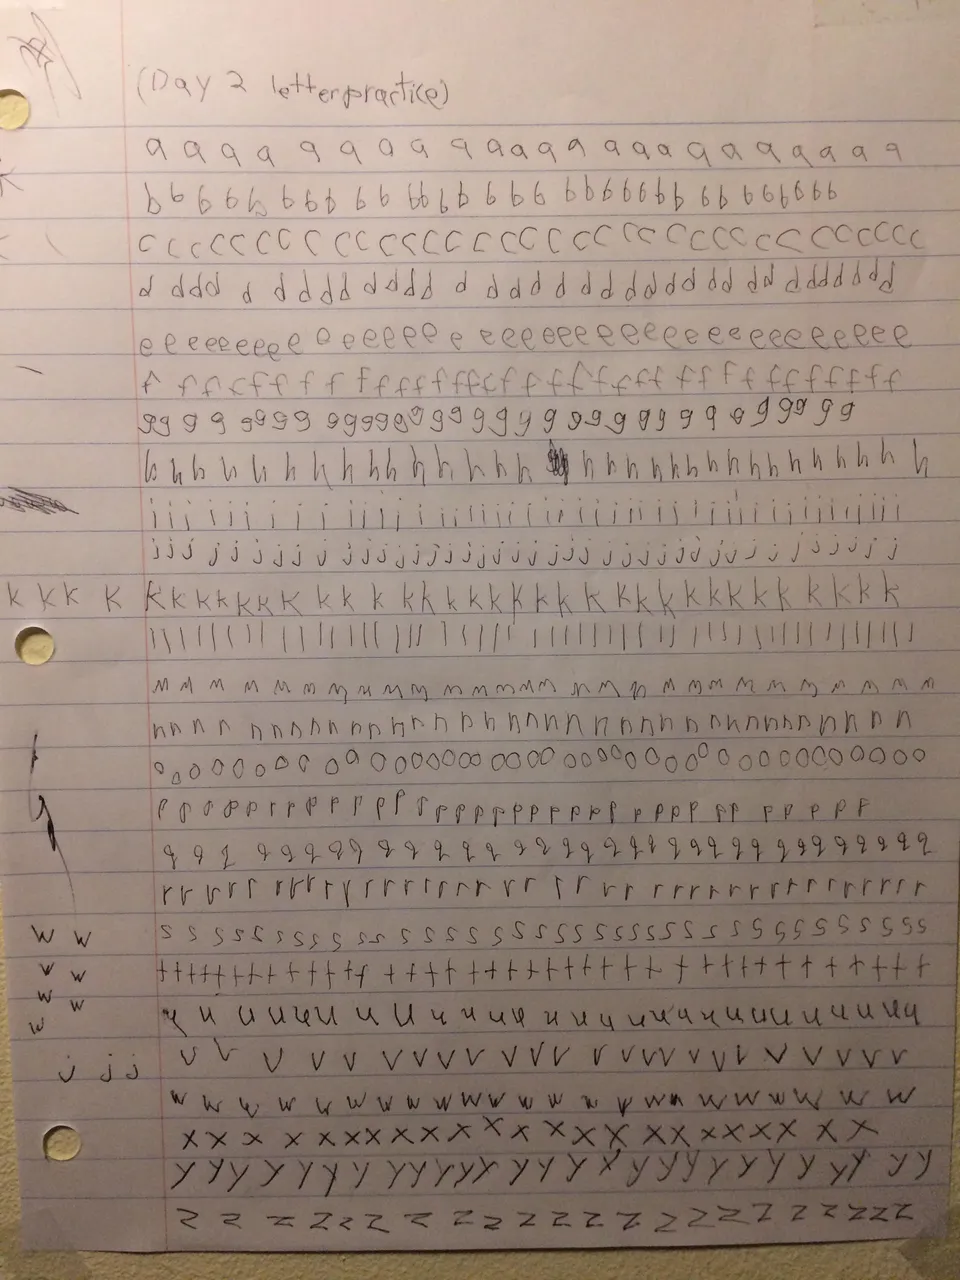 (Day 2 letter practice)
a a a a a a a a a a a a a a a a a a a a a a a a
b b b b b b b b b b b b b b b b b b b b b b b b b b b b b b b
c c c c c c c c c c c c c c c c c c c c c c c c c c c c c c c
d d d d d d d d d d d d d d d d d d d d d d d d d d d d d d d
e e e e e e e e e e e e e e e e e e e e e e e e e e e e e e e
f f f f f f f f f f f f f f f f f f f f f f f f f f f f f f
g g g g g g g g g g g g g g g g g g g g g g g g g g g g g g
h h h h h h h h h h h h h h h h h h h h h h h h h h h
i i i i i i i i i i i i i i i i i i i i i i i i i i i i i i i i i
j j j j j j j j j j j j j j j j j j j j j j j j j j j j j j j
k k k k k k k k k k k k k k k k k k k k k k k k k k k k k k k k
l l l l l l l l l l l l l l l l l l l l l l l l l l l l l l l l l l
m m m m m m m m m m m m m m m m m m m m m m m m m m
n n n n n n n n n n n n n n n n n n n n n n n n n n n n n n
o o o o o o o o o o o o o o o o o o o o o o o o o o o o o o o o o
p p p p p p p p p p p p p p p p p p p p p p p p p p p p p p
q q q q q q q q q q q q q q q q q q q q q q q q q q q q q
r r r r r r r r r r r r r r r r r r r r r r r r r r r r r r r
w w s s s s s s s s s s s s s s s s s s s s s s s s s s s s s s s s
w w t t t t t t t t t t t t t t t t t t t t t t t t t t t t t t t
w w
w u u u u u u u u u u u u u u u u u u u u u u u u u u
j j j v v v v v v v v v v v v v v v v v v v v v v v v
w w w w w w w w w w w w w w w w w w w w w w w w
x x x x x x x x x x x x x x x x x x x x x x x
y y y y y y y y y y y y y y y y y y y y y y y y y y y
z z z z z z z z z z z z z z z z z z z z z z